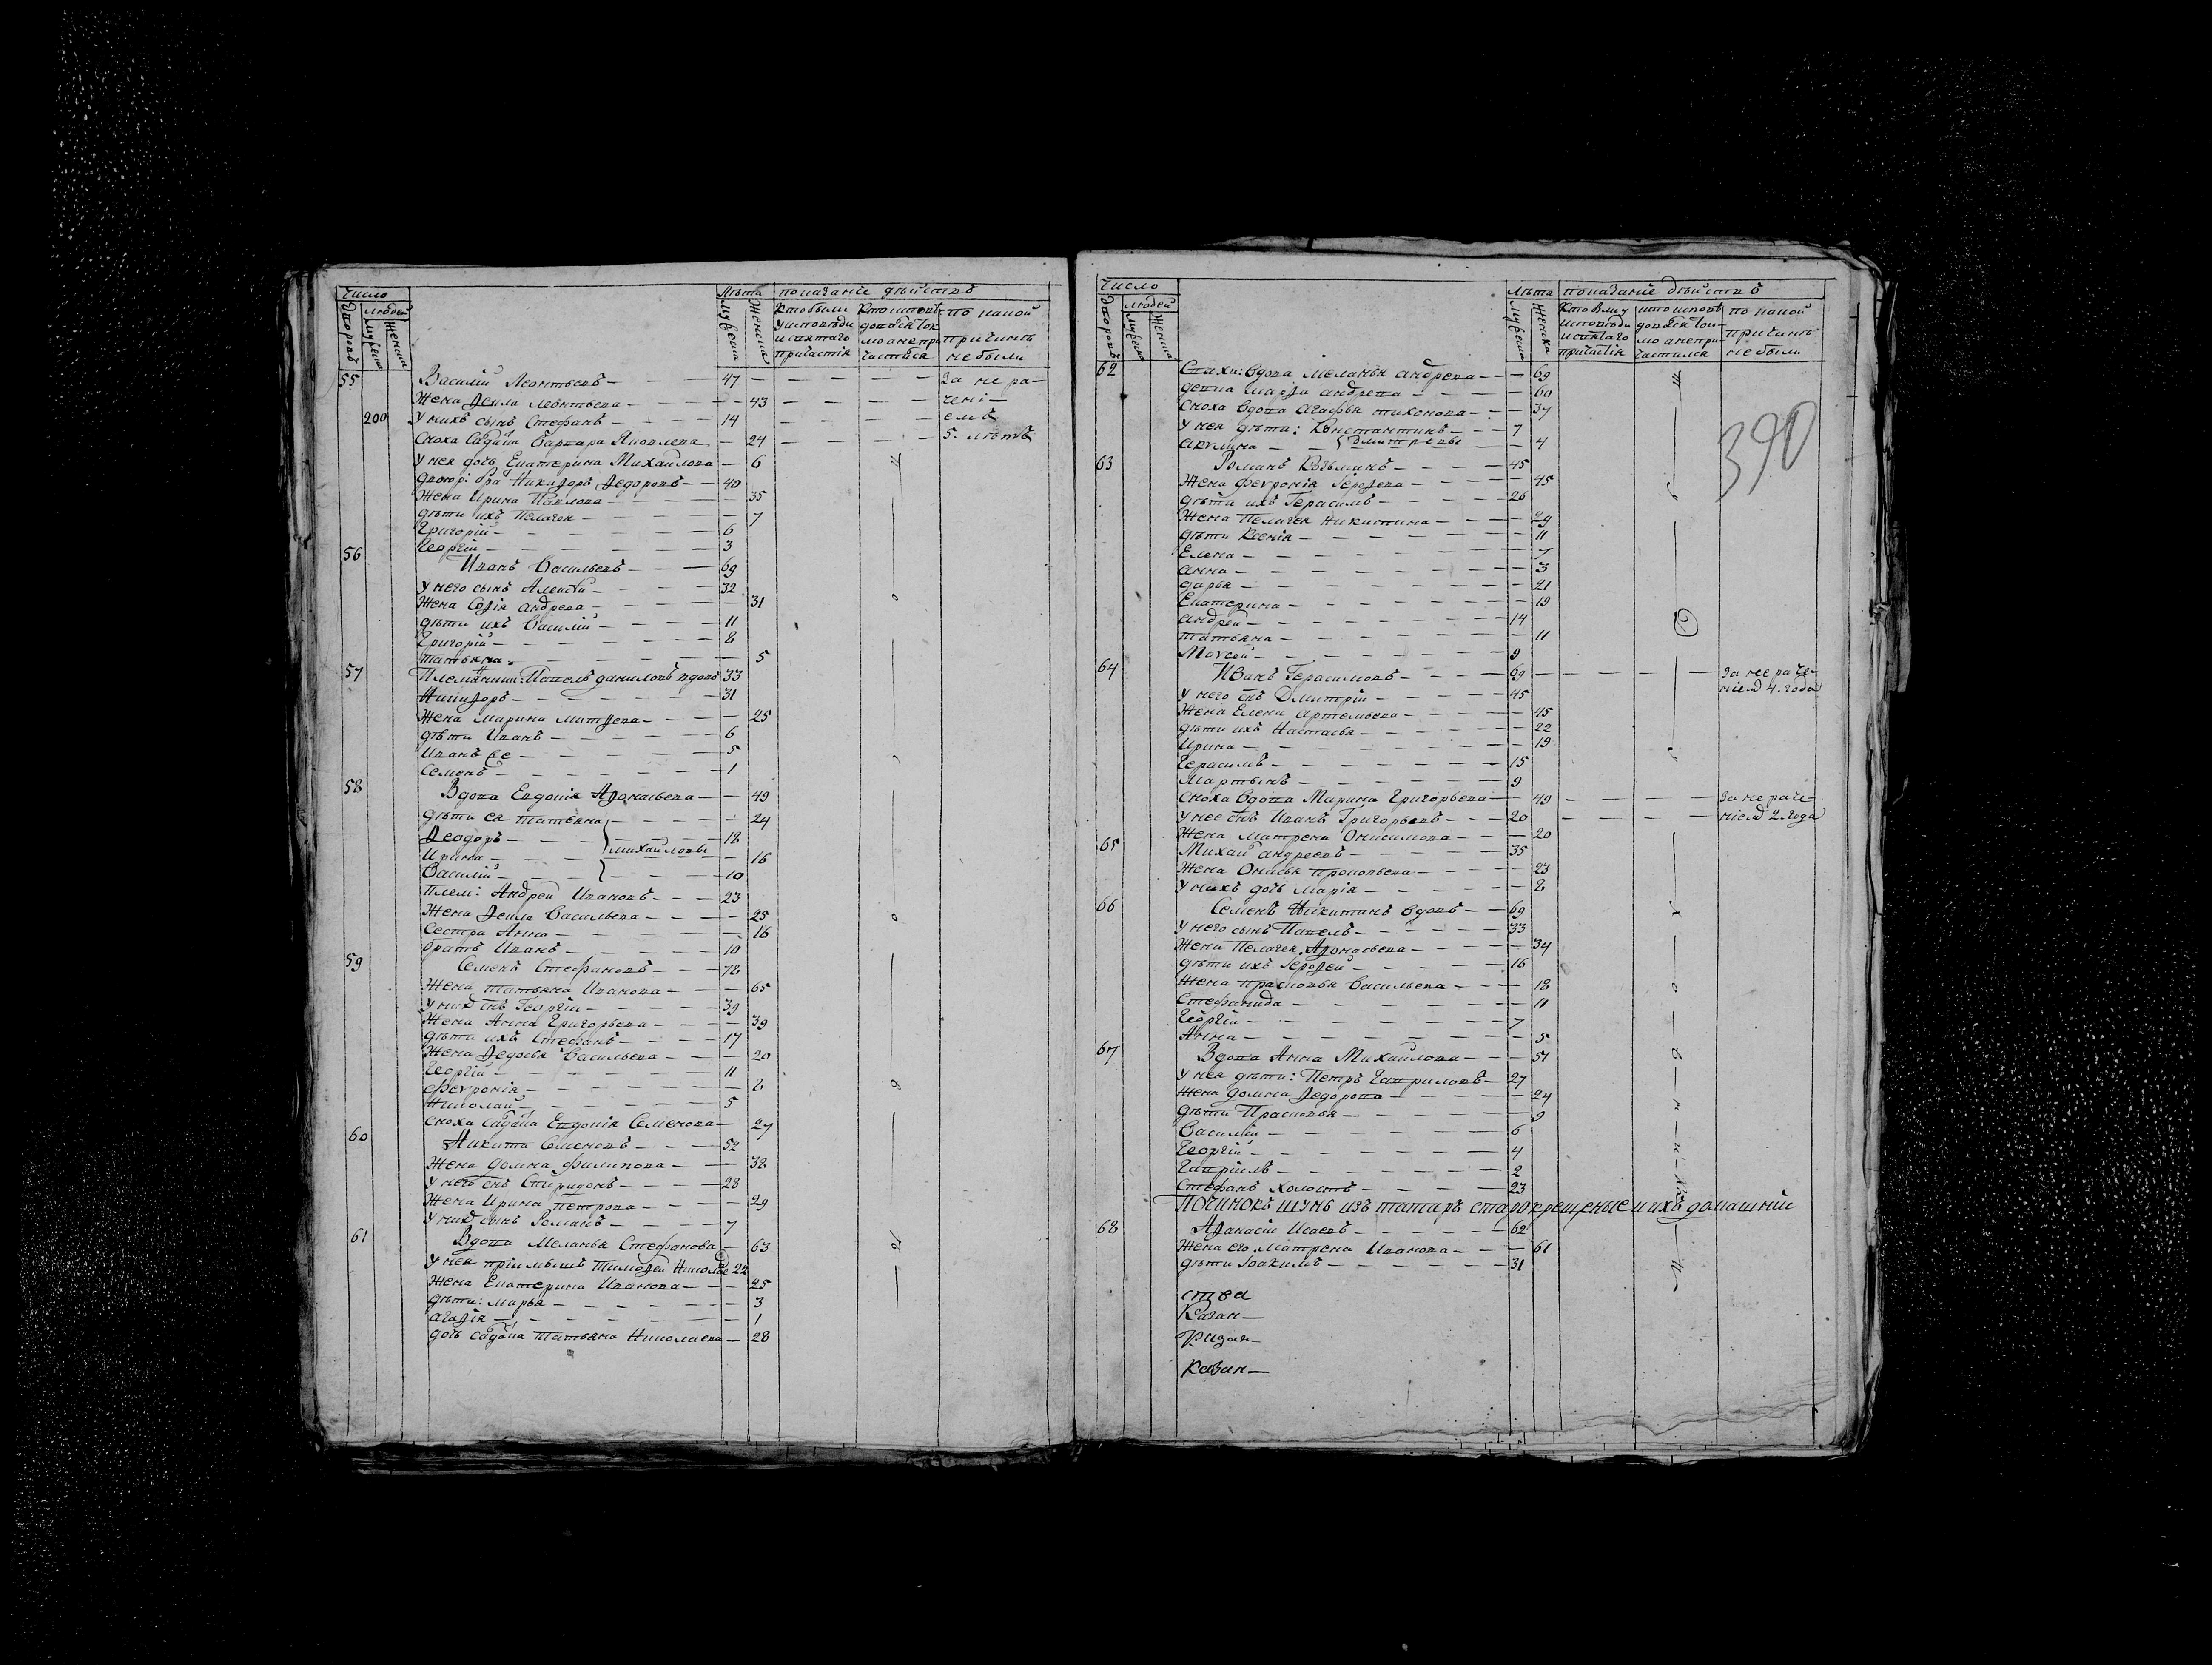 Число
Лѣта показаніе дѣйствъ
Дворовъ
людей
мужеска
женска
мужеска
женска
Кто были у исповѣди и святаго причастія
Кто исповѣдовался токмо а не причастился
по какой причинѣ не были
55 Василій Леонтьевъ 47 За не ра-
Жена Леонтьева 43 чені-
200 У нихъ сынъ Стефанъ 14 емъ
Сноха Варвара Яковлева 24 5. лѣтъ
У нея дочь Екатерина Михайлова 6
Никифоръ Ѳедоровъ 40
Жена Ирина Павлова 35
дѣти ихъ Пелагея 7
Григорій 6
Георгій 3
56 Иванъ Васильевъ 69
У него сынъ Алексѣй 32
Жена Софія андрева 31
дѣти ихъ Василій 11
Григорій 8
татьяна 5
57 Павелъ даниловъ вдовъ 33
Никифоръ 31
Жена Марина Матѳева 25
дѣти Иванъ 6
Иванъ 5
Семенъ 1
58 Вдова Евдокія Аѳонасьева 49
дѣти ея татьяна 24
Ѳеодоръ 18
михайловы
Ирина 16
Василій 10
плем: Андрей Ивановъ 23
Жена Васильева 25
Сестра Анна 16
братъ Иванъ 10
59 Семенъ Стефановъ 78
Жена татьяна Иванова 65
Георгій 39
Жена Анна Григорьева 39
дѣти ихъ Стефанъ 17
Жена Ѳедосья Васильева 20
Георгій 11
Феѵронія 8
Николай 5
сноха Евдокія Семенова 27
60 Никита Семеновъ 52
Жена домна филипова 38
У него снъ Спиридонъ 28
Жена Ирина петрова 29
сынъ Романъ 7
61 Вдова Меланья Стефанова 63
У нея пріимышъ Тимоѳей 22
Жена Екатерина Иванова 25
дѣти: марья 3
агафія 1
дочь татьяна Николаева 28
Число
Лѣта показаніе дѣйствъ
Дворовъ
людей
мужеска
женска
мужеска
женска
по какой причинѣ не были
390
62 вдова меланья андрева 69
марѳа андрева 60
сноха вдова агафья тихонова 37
У нея дѣти: Константинъ 7
дмитревы
акулина 4
63 Романъ 45
Жена феѵронія 45
дѣти ихъ Герасимъ 26
Жена Пелагея Никитина 29
дѣти Ксенія 11
Елена 7
анна 3
дарья 21
Екатерина 19
андрей 14
татьяна 11
Моѵсей 9
64 Иванъ Герасимовъ 69 За не раче-
У него снъ Дмитрій 45 ніемъ 4. года
Жена Елена артемьева 45
дѣти ихъ Настасья 22
Ирина 19
Герасимъ 15
Мартынъ 9
сноха вдова Марина Григорьева 49 За не раче-
У нее снъ Иванъ Григорьевъ 20 ніемъ 2. года
Жена матрена Онисимова 20
65 Михаи андреевъ 35
Жена прокопьева 23
У нихъ дочь марія 8
66 Семенъ Никитинъ вдовъ 69
У него сынъ Павелъ 33
Жена Пелагея Аѳонасьева 34
дѣти ихъ 16
Жена прасковья Васильева 18
Стефанида 11
Георгій 7
Анна 5
67 Вдова Анна Михайлова 51
У нея дѣти: Петръ Гавриловъ 27
Жена домна Ѳедорова 24
дѣти Прасковья 9
Василій 6
Георгій 4
Гавріилъ 2
Стефанъ холостъ 23
Починокъ шунь изъ татаръ старокрещеные и ихъ домашніи
68 Аѳанасій Исаевъ 62
Жена его матрена Иванова 61
дѣти Іоакимъ 31
Казан